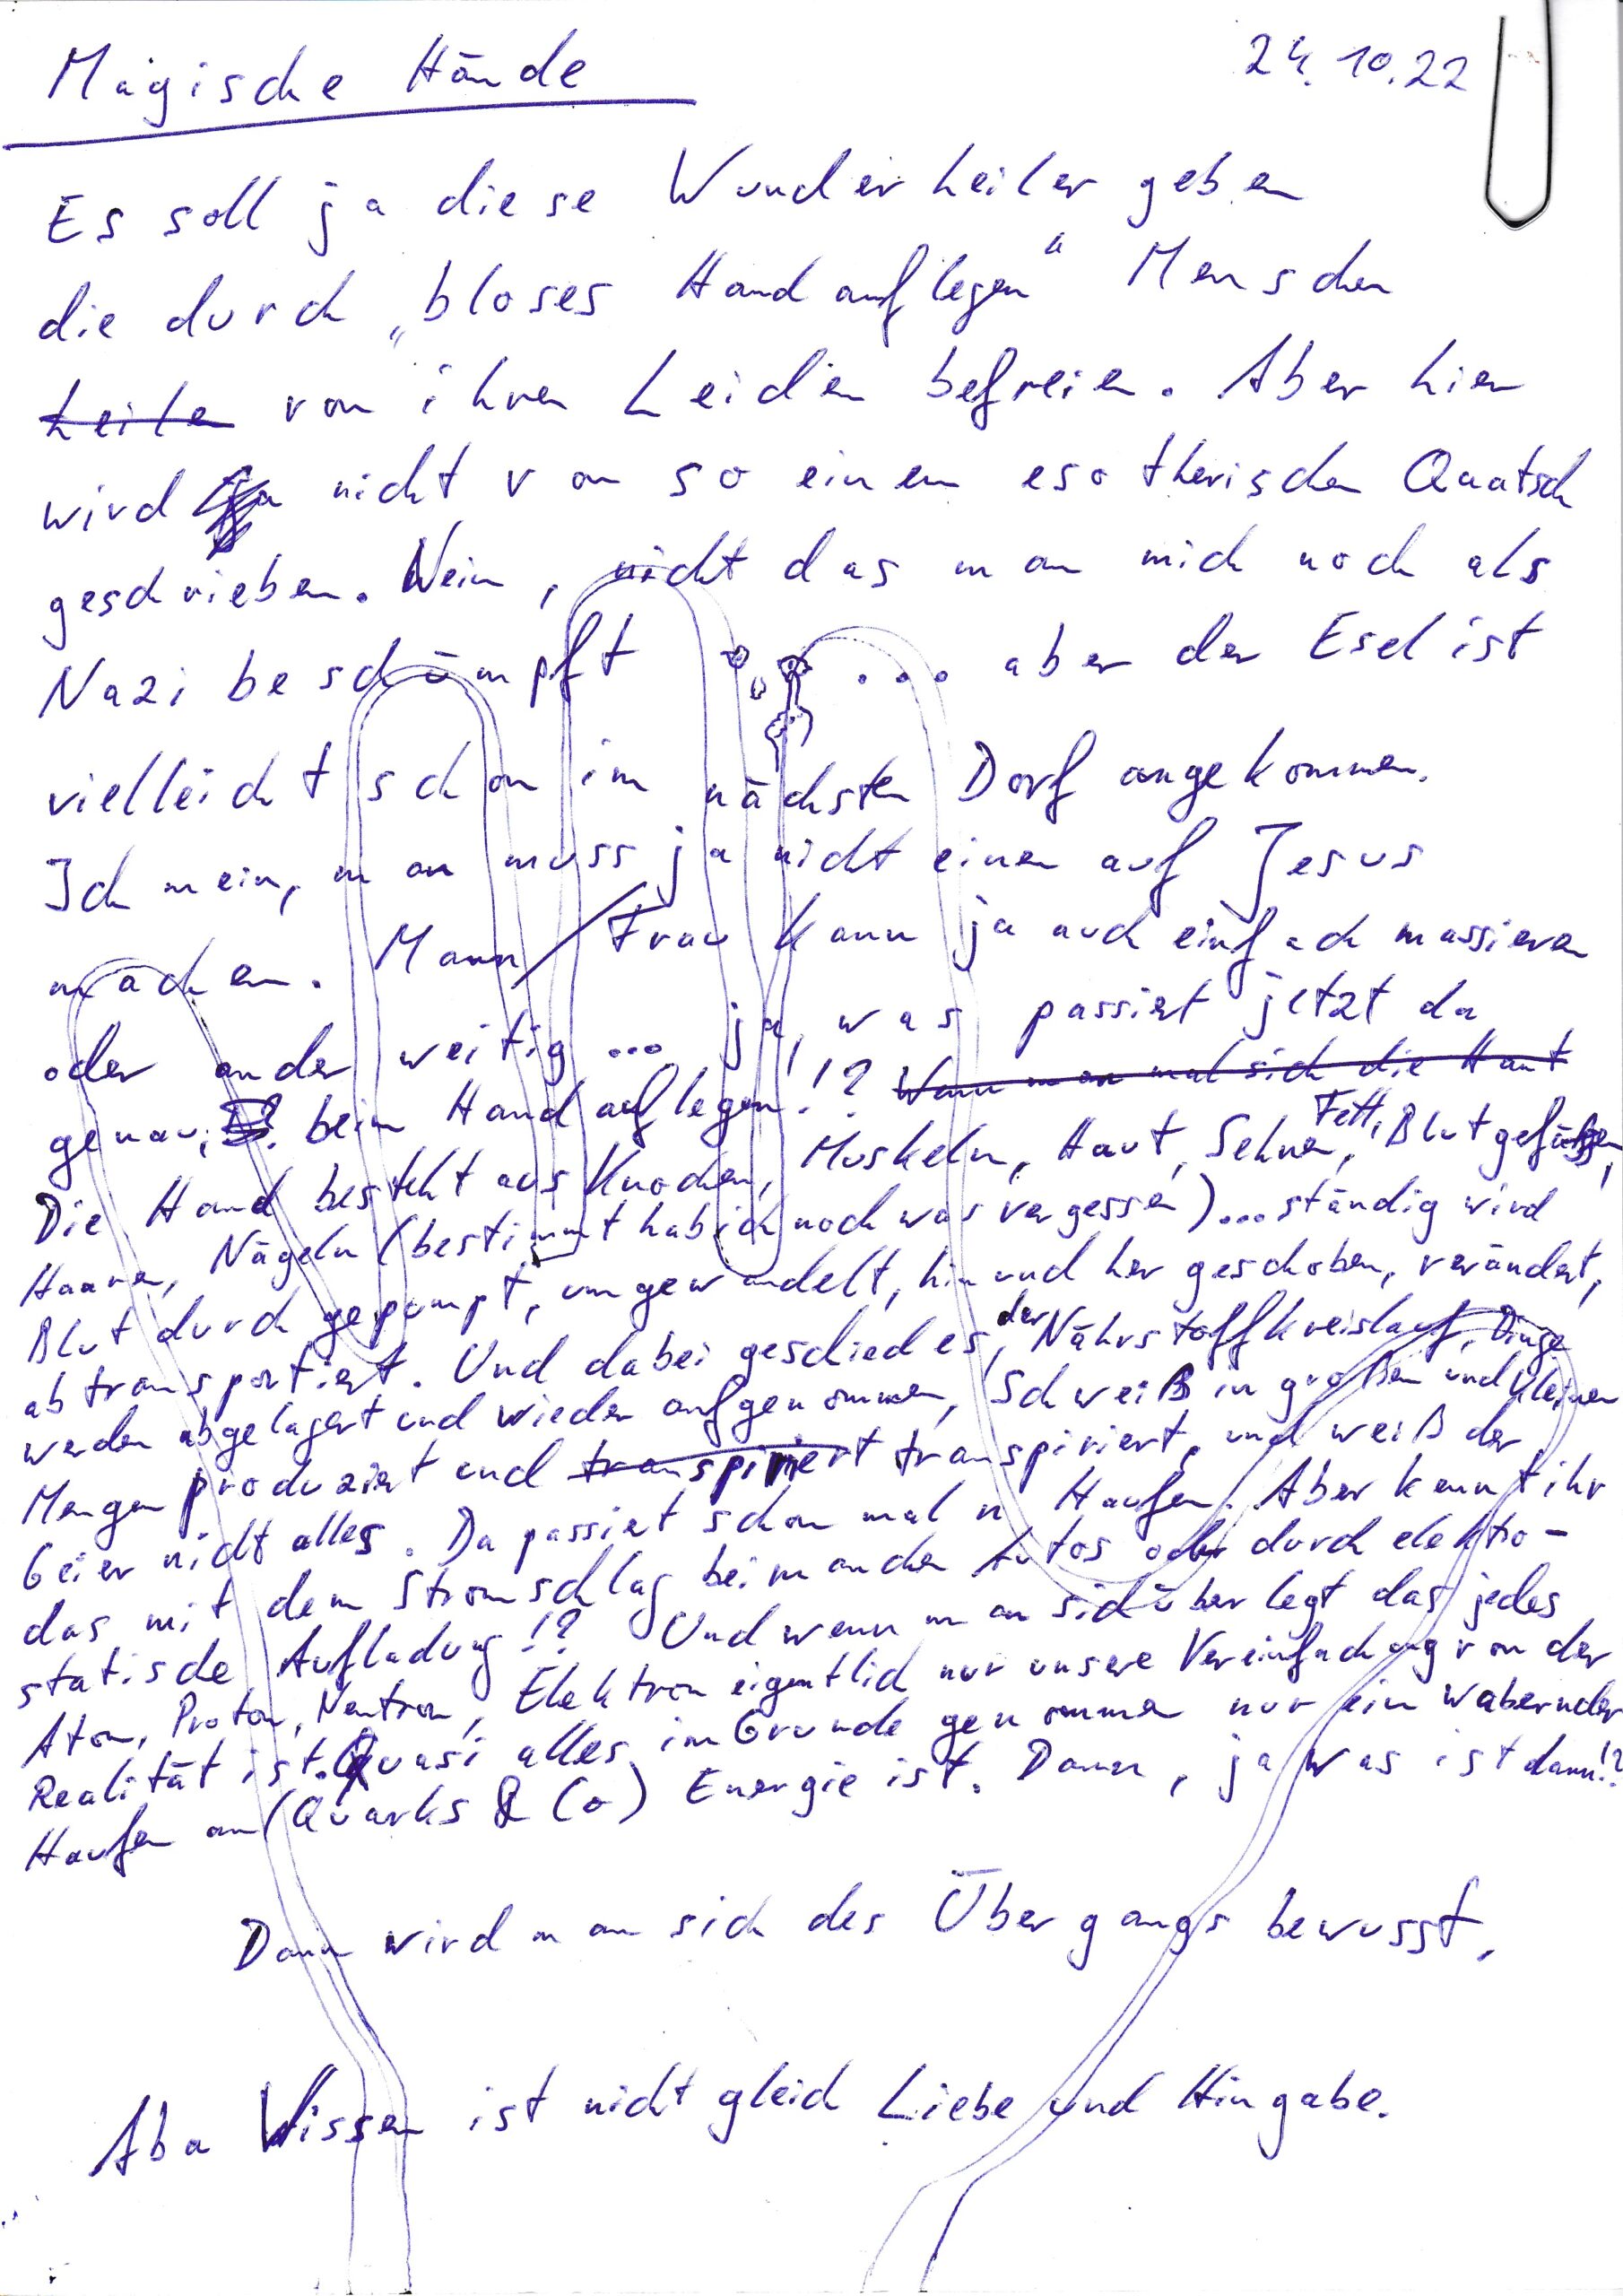 Magische Hände 24.10.22
Es soll ja diese Wunderheiler geben
die durch „bloses Handauflegen“ Menschen
heilen von ihren Leiden befreien. Aber hier
wird nicht von so einem esotherischen Quatsch
geschrieben. Nein, nicht das man mich noch als
Nazi beschümpft ... aber der Esel ist
vielleicht schon im nächsten Dorf angekommen.
Ich mein, man muss ja nicht einen auf Jesus
machen. Mann/Frau kann ja auch einfach massieren
oder anderweitig ... ja, was passiert jetzt da
genau, beim Handauflegen!? Wenn man mal sich die Haut
Die Hand besteht aus Knochen, Muskeln, Haut, Sehnen, Fett, Blutgefäßen,
Haaren, Nägeln (bestimmt hab ich noch was vergessen)...ständig wird
Blut durch gepumpt, umgewandelt, hin und her geschoben, verändert,
abtransportiert. Und dabei geschied es, der Nährstoffkreislauf, Dinge
werden abgelagert und wieder aufgenommen, Schweiß in großen und kleinen
Mengen produziert und transpiriert transpiriert, und weiß der
Geier nicht alles. Da passiert schon mal n Haufen. Aber kennt ihr
das mit dem Stromschlag bei manchen Autos oder durch elektro-
statische Aufladung!? Und wenn man sich überlegt das jedes
Atom, Proton, Neutron, Elektron eigentlich nur unsere Vereinfachung von der
Realität ist. Quasi alles im Grunde genommen nur ein wabernder
Haufen an (Quarks & Co) Energie ist. Dann, ja was ist dann!?
Dann wird man sich des Übergangs bewusst.
Aba Wissen ist nicht gleich Liebe und Hingabe.